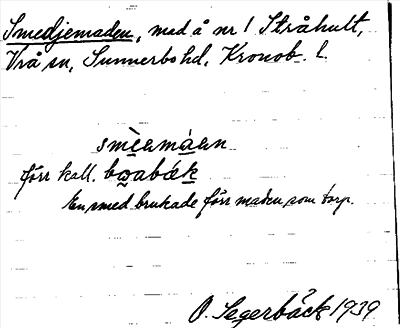 Smedjemaden, mad å nr 1 Stråhult,
Vrå sn, Sunnerbo hd, Kronob. l.
smèɐmáɐn
förr kall. bꞷabák
En smed brukade förr maden som torp.
O. Segerbäck 1939